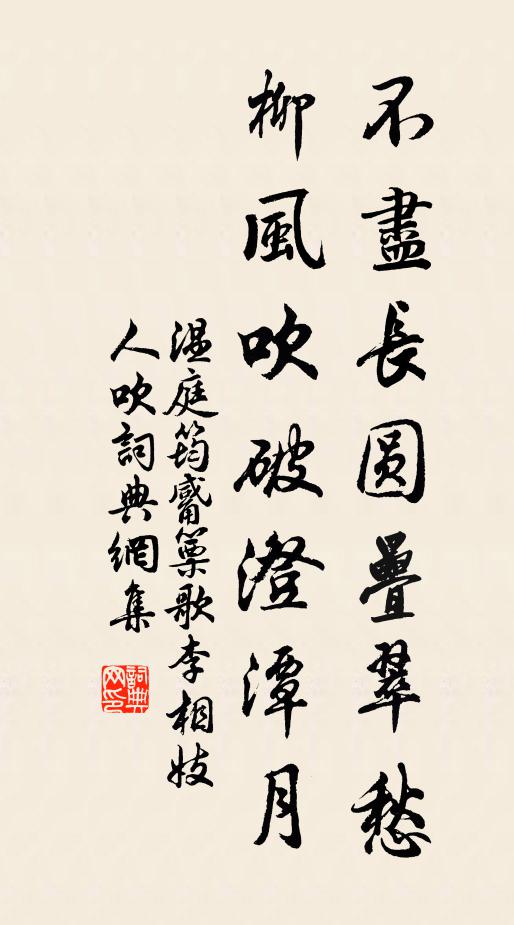 不盡長圓疊翠愁
柳風吹破澄潭月
溫庭筠觱篥歌李相妓
人吹詞典網集
詞典
网印